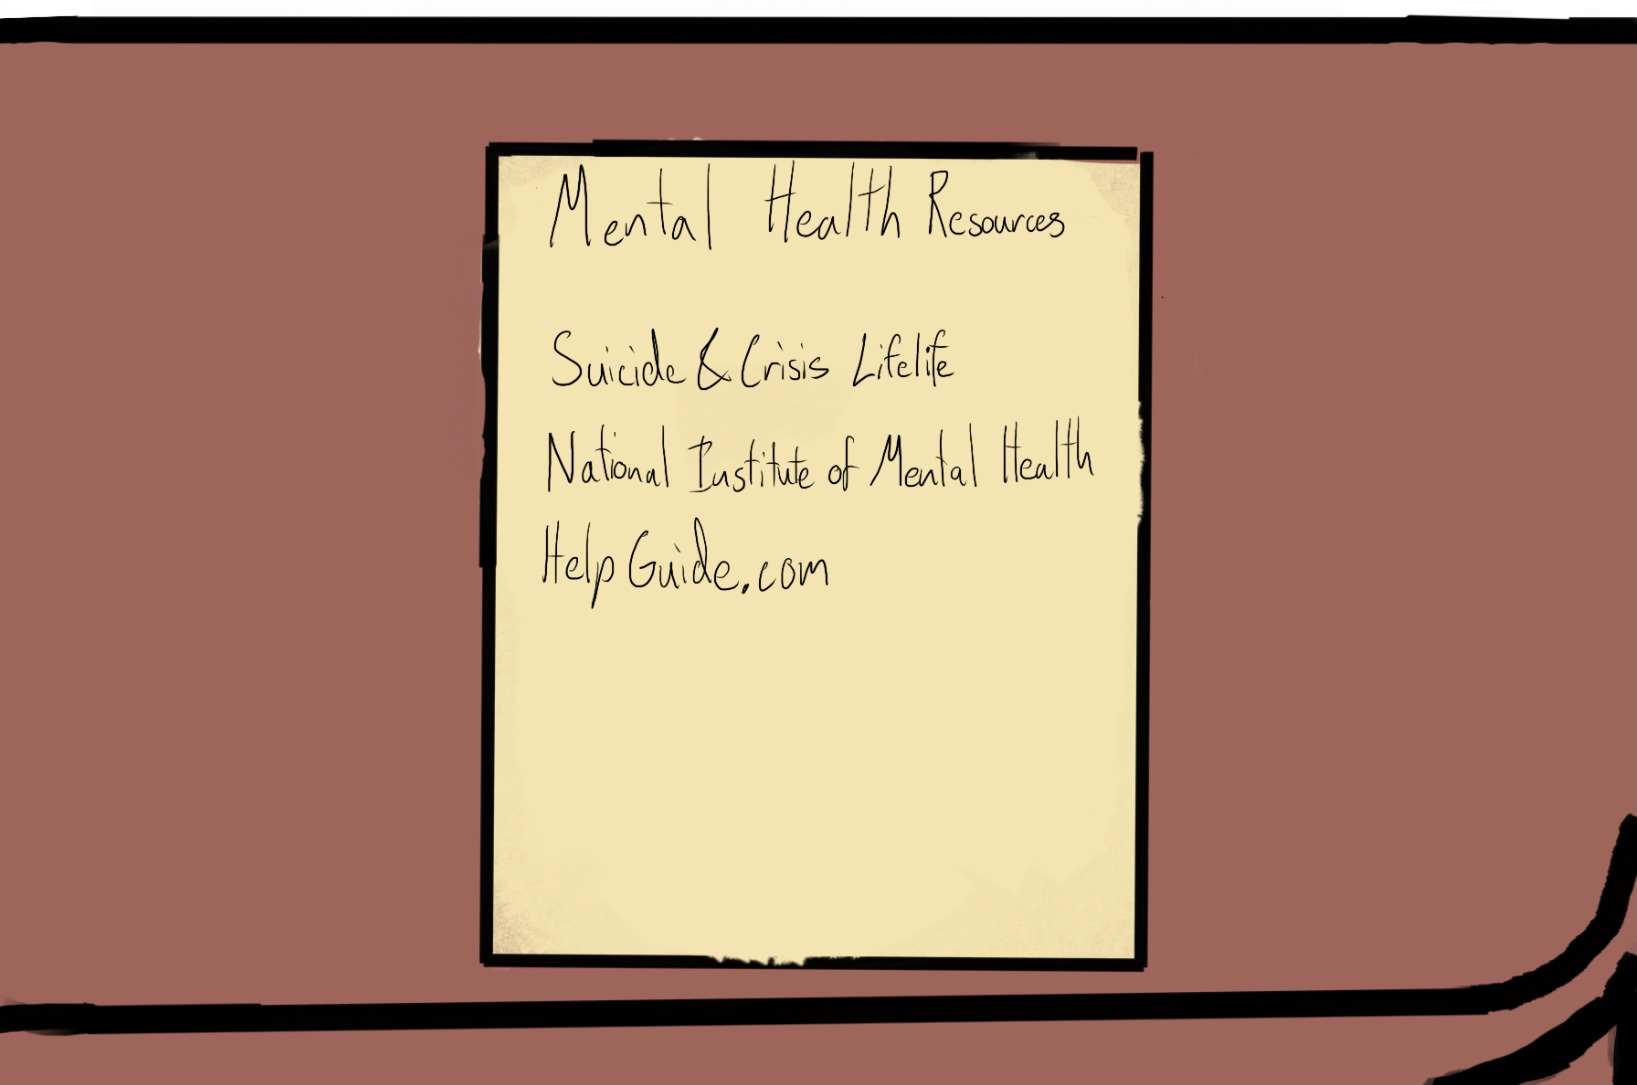 Mental Health Resources
Suicide & Crisis Lifelife
National Institute of Mental Health
HelpGuide.com